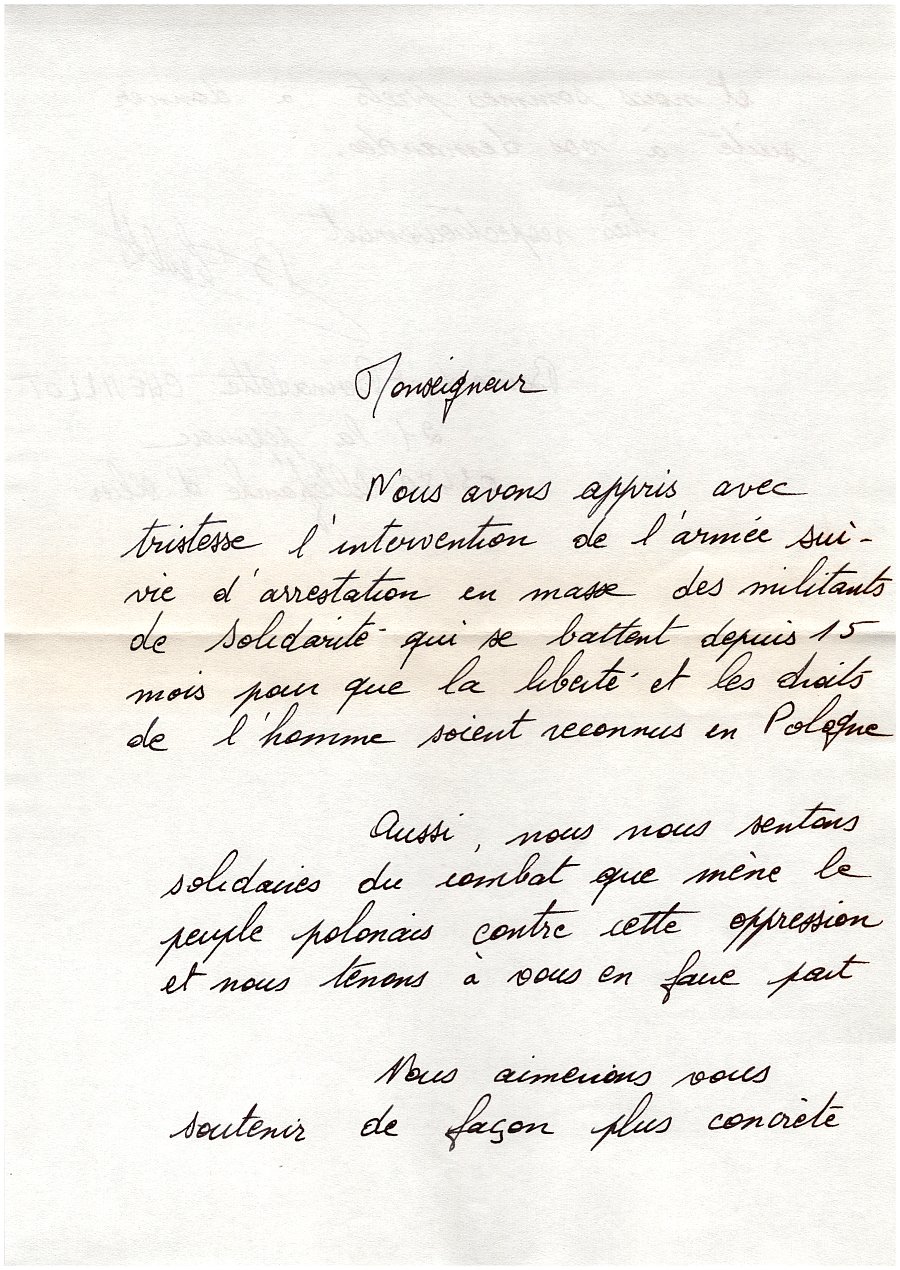 Monseigneur
Nous avons appris avec
tristesse l'intervention de l'armée sui-
vie d'arrestation en masse des militants
de solidarité qui se battent depuis 15
mois pour que la liberté et les droits
de l'homme soient reconnus en Pologne
Aussi, nous nous sentons
solidaires du combat que mène le
peuple polonais contre cette oppression
et nous tenons à vous en faire part
Nous aimerions vous
soutenir de façon plus concrète